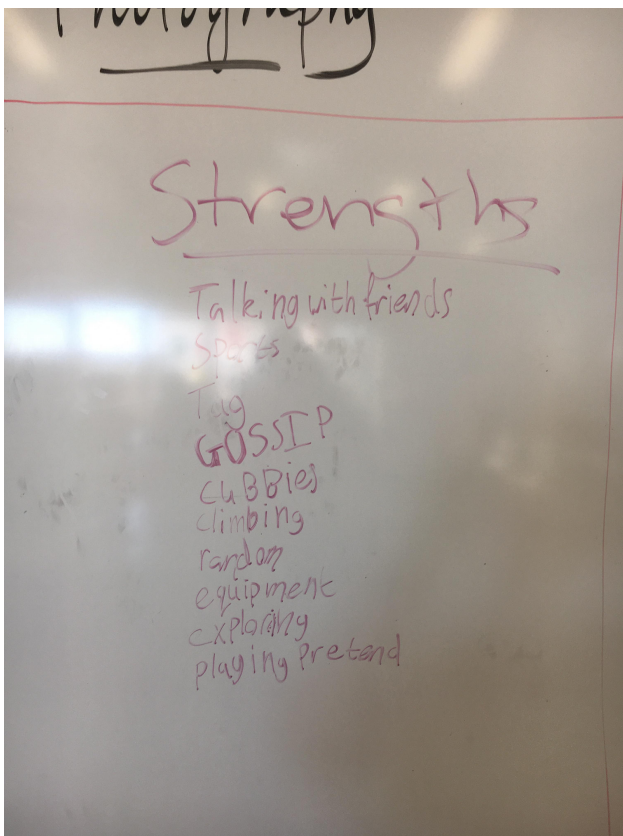 Photography
Strengths
Talking with friends
Sports
Tag
GOSSIP
CUBBies
climbing
random
equipment
exploring
playing Pretend